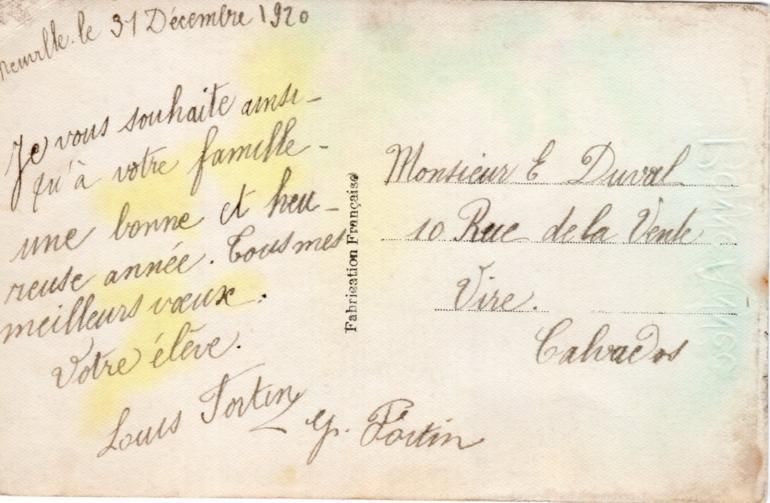 Neuville. le 31 Décembre 1920
Je vous souhaite ainsi-
qu'à votre famille-
une bonne et heu-
reuse année. Tous mes
meilleurs vœux.
Votre élève.
Louis Fortin
G. Fortin
Fabrication Française
Monsieur E Duval
10 Rue de la Vente
Vire.
Calvados